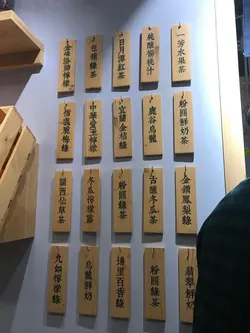 一芳水果茶
日月潭紅茶
包種綠茶
金峰洛神檸檬
粉圓鮮奶茶
鹿谷烏龍
宜蘭金桔綠
中華愛玉檸檬
信義脆梅綠
金鑽鳳梨綠
古釀冬瓜茶
粉圓綠茶
冬瓜檸檬露
關西仙草茶
翡翠鮮奶
粉圓綠茶
埔里百香綠
烏龍鮮奶
九如檸檬綠